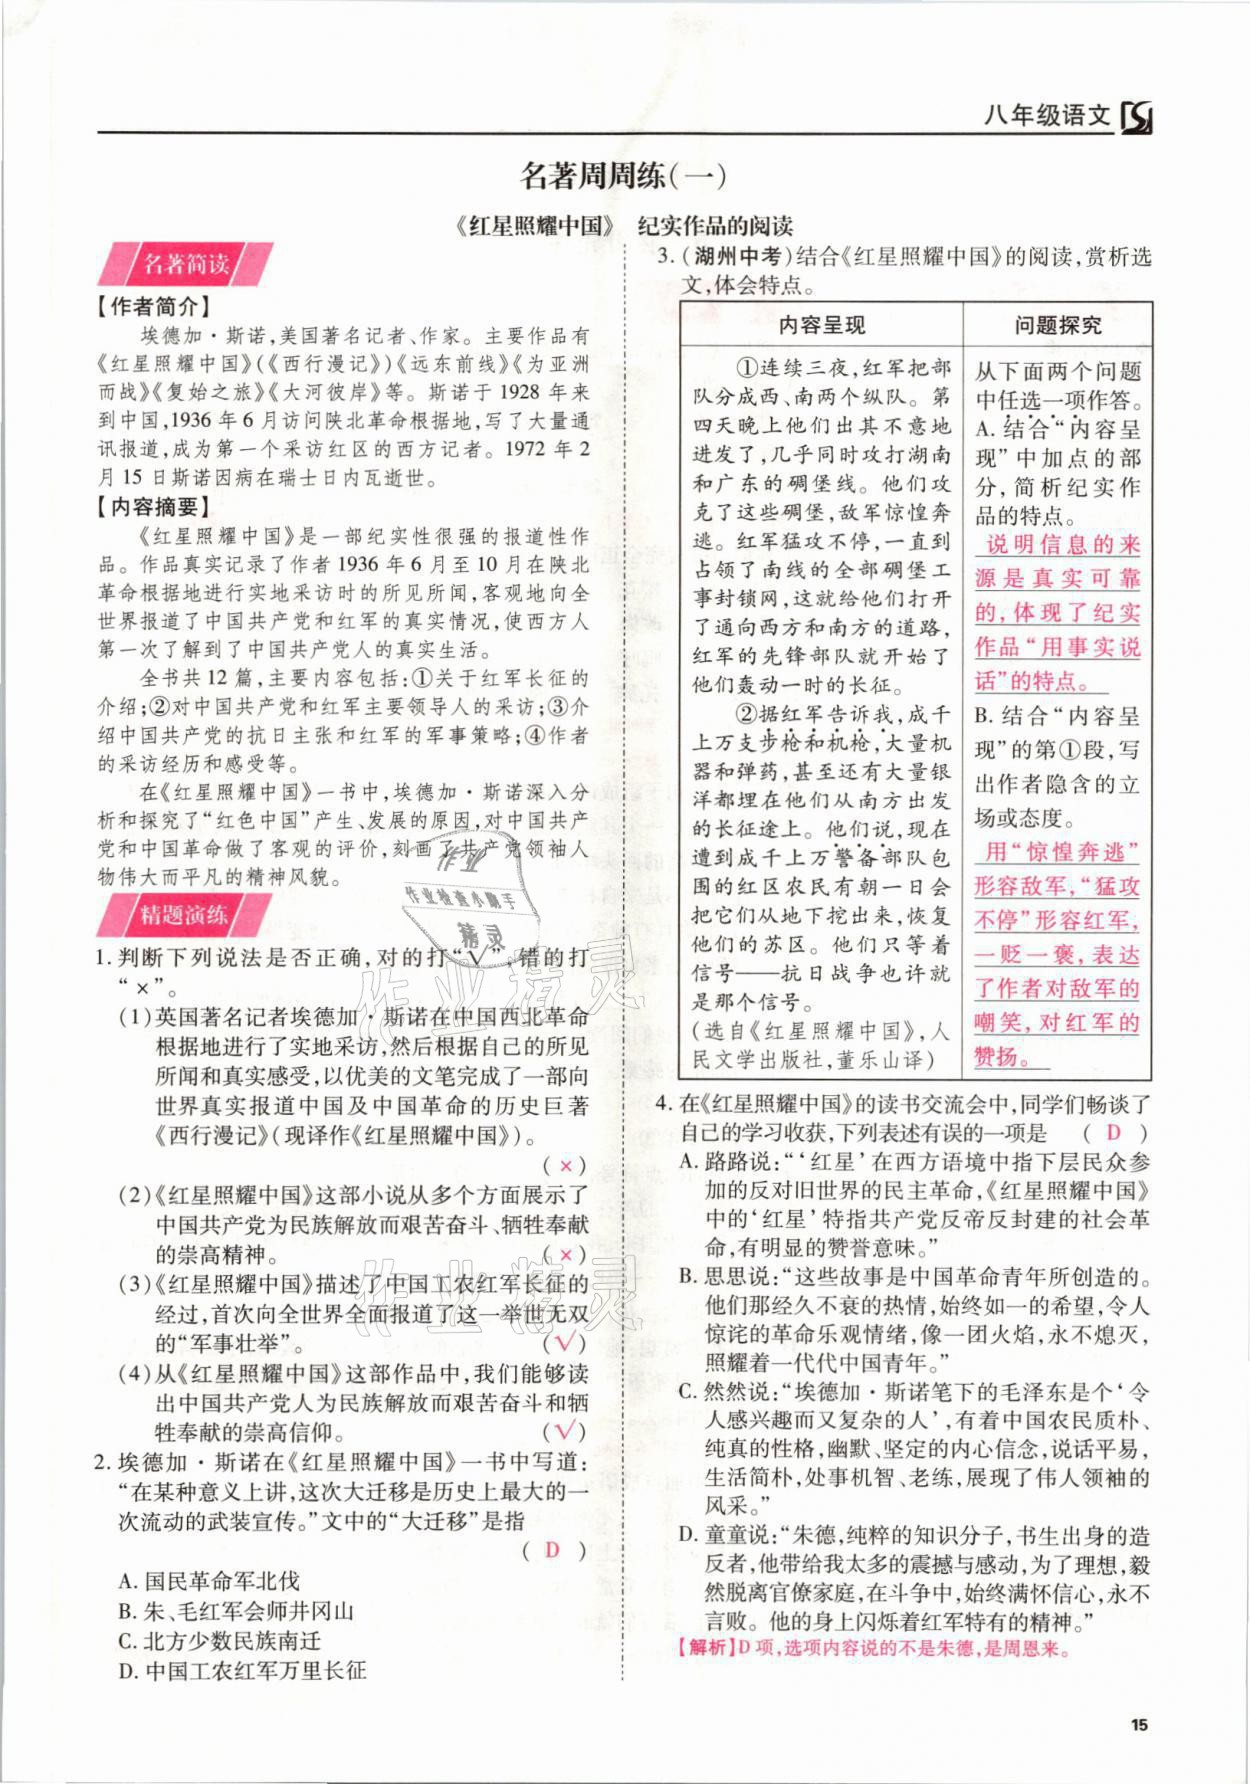 八年级语文
名著周周练(一)
《红星照耀中国》 纪实作品的阅读
名著简读
【作者简介】
埃德加·斯诺,美国著名记者、作家。主要作品有
《红星照耀中国》(《西行漫记》)《远东前线》《为亚洲
而战》《复始之旅》《大河彼岸》等。斯诺于1928年来
到中国,1936年6月访问陕北革命根据地,写了大量
通讯报道,成为第一个采访红区的西方记者。1972年2
月15日斯诺因病在瑞士日内瓦逝世。
【内容摘要】
《红星照耀中国》是一部纪实性很强的报道性作
品。作品真实记录了作者1936年6月至10月在陕北
革命根据地进行实地采访时的所见所闻,客观地向全
世界报道了中国共产党和红军的真实情况,使西方人
第一次了解到了中国共产党人的真实生活。
全书共12篇,主要内容包括:①关于红军长征的
介绍;②对中国共产党和红军主要领导人的采访;③介
绍中国共产党的抗日主张和红军的军事策略;④作者
的采访经历和感受等。
在《红星照耀中国》一书中,埃德加·斯诺深入分
析和探究了“红色中国”产生、发展的原因,对中国共产
党和中国革命做了客观的评价,刻画了共产党领袖人
物伟大而平凡的精神风貌。
精题演练
1.判断下列说法是否正确,对的打“√”,错的打
“×”。
(1)英国著名记者埃德加·斯诺在中国西北革命
根据地进行了实地采访,然后根据自己的所见
所闻和真实感受,以优美的文笔完成了一部向
世界真实报道中国及中国革命的历史巨著
《西行漫记》(现译作《红星照耀中国》)。
(×)
(2)《红星照耀中国》这部小说从多个方面展示了
中国共产党为民族解放而艰苦奋斗、牺牲奉献
的崇高精神。 (×)
(3)《红星照耀中国》描述了中国工农红军长征的
经过,首次向全世界全面报道了这一举世无双
的“军事壮举”。 (√)
(4)从《红星照耀中国》这部作品中,我们能够读
出中国共产党人为民族解放而艰苦奋斗和牺
牲奉献的崇高信仰。 (√)
2.埃德加·斯诺在《红星照耀中国》一书中写道:
“在某种意义上讲,这次大迁移是历史上最大的一
次流动的武装宣传。”文中的“大迁移”是指
( D )
A.国民革命军北伐
B.朱、毛红军会师井冈山
C.北方少数民族南迁
D.中国工农红军万里长征
3.(湖州中考)结合《红星照耀中国》的阅读,赏析选
文,体会特点。
内容呈现
①连续三夜,红军把部
队分成西、南两个纵队。第
四天晚上他们出其不意地
进发了,几乎同时攻打湖南
和广东的碉堡线。他们攻
克了这些碉堡,敌军惊惶奔
逃。红军猛攻不停,一直到
占领了南线的全部碉堡工
事封锁网,这就给他们打开
了通向西方和南方的道路,
红军的先锋部队就开始了
他们轰动一时的长征。
②据红军告诉我,成千
上万支步枪和机枪,大量机
器和弹药,甚至还有大量银
洋都埋在他们从南方出发
的长征途上。他们说,现在
遭到成千上万警备部队包
围的红区农民有朝一日会
把它们从地下挖出来,恢复
他们的苏区。他们只等着
信号——抗日战争也许就
是那个信号。
(选自《红星照耀中国》,人
民文学出版社,董乐山译)
问题探究
从下面两个问题
中任选一项作答。
A.结合“内容呈
现”中加点的部
分,简析纪实作
品的特点。
说明信息的来
源是真实可靠
的,体现了纪实
作品“用事实说
话”的特点。
B.结合“内容呈
现”的第①段,写
出作者隐含的立
场或态度。
用“惊惶奔逃”
形容敌军,“猛攻
不停”形容红军,
一贬一褒,表达
了作者对敌军的
嘲笑,对红军的
赞扬。
4.在《红星照耀中国》的读书交流会中,同学们畅谈了
自己的学习收获,下列表述有误的一项是 ( D )
A.路路说:“‘红星’在西方语境中指下层民众参
加的反对旧世界的民主革命,《红星照耀中国》
中的‘红星’特指共产党反帝反封建的社会革
命,有明显的赞誉意味。”
B.思思说:“这些故事是中国革命青年所创造的。
他们那经久不衰的热情,始终如一的希望,令人
惊诧的革命乐观情绪,像一团火焰,永不熄灭,
照耀着一代代中国青年。”
C.然然说:“埃德加·斯诺笔下的毛泽东是个‘令
人感兴趣而又复杂的人’,有着中国农民质朴、
纯真的性格,幽默、坚定的内心信念,说话平易,
生活简朴,处事机智、老练,展现了伟人领袖的
风采。”
D.童童说:“朱德,纯粹的知识分子,书生出身的造
反者,他带给我太多的震撼与感动,为了理想,毅
然脱离官僚家庭,在斗争中,始终满怀信心,永不
言败。他的身上闪烁着红军特有的精神。”
【解析】D项,选项内容说的不是朱德,是周恩来。
作业检查小助手
精灵
作业精灵
作业精灵
15